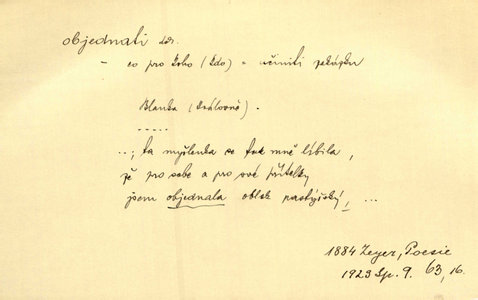 objednati dok.
– co pro koho (kdo) = učiniti zakázku
Blanka (královně).
.....
..; ta myšlenka se tak mně líbila,
že pro sebe a pro své přítelky
jsem objednala oblek pastýřský, ...
1884 Zeyer, Poesie
1923 Sp. 9. 63, 16.